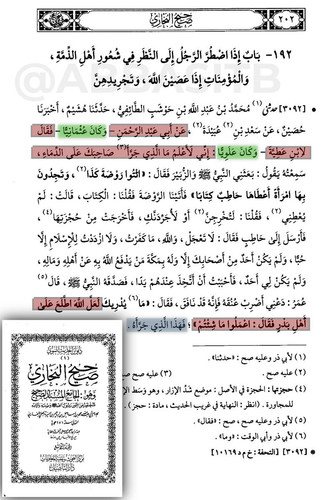 ٢٠٢
صحيح البخاري
١٩٢- بَابُ إِذَا اضْطُرَّ الرَّجُلُ إِلَى النَّظَرِ فِي شُعُورِ أَهْلِ الذِّمَّةِ،
وَالْمُؤْمِنَاتِ إِذَا عَصَيْنَ اللهَ، وَتَجْرِيدِهِنَّ
[٣٠٩٢] مُحَمَّدُ بْنُ عَبْدِ اللهِ بْنِ حَوْشَبٍ الطَّائِفِيُّ، حَدَّثَنَا هُشَيْمٌ، أَخْبَرَنَا
حُصَيْنٌ، عَنْ سَعْدِ بْنِ عُبَيْدَةَ، عَنْ أَبِي عَبْدِ الرَّحْمَنِ - وَكَانَ عُثْمَانِيًّا - فَقَالَ
لِابْنِ عَطِيَّةَ - وَكَانَ عَلَوِيًّا : إِنِّي لَأَعْلَمُ مَا الَّذِي جَرَّأَ صَاحِبَكَ عَلَى الدِّمَاءِ،
سَمِعْتُهُ يَقُولُ : بَعَثَنِي النَّبِيُّ ﷺ وَالزُّبَيْرَ فَقَالَ : «ائْتُوا رَوْضَةَ كَذَا، وَتَجِدُونَ
بِهَا امْرَأَةً أَعْطَاهَا حَاطِبٌ كِتَابًا» فَأَتَيْنَا الرَّوْضَةَ فَقُلْنَا : الْكِتَابَ، قَالَتْ : لَمْ
يُعْطِنِي، فَقُلْنَا : لَتُخْرِجِنَّ أَوْ لَأُجَرِّدَنَّكِ، فَأَخْرَجَتْ مِنْ حُجْزَتِهَا،
فَأَرْسَلَ إِلَى حَاطِبٍ فَقَالَ : لَا تَعْجَلْ، وَاللهِ، مَا كَفَرْتُ، وَلَا ازْدَدْتُ لِلْإِسْلَامِ إِلَّا
حُبًّا، وَلَمْ يَكُنْ أَحَدٌ مِنْ أَصْحَابِكَ إِلَّا وَلَهُ بِمَكَّةَ مَنْ يَدْفَعُ اللهُ بِهِ عَنْ أَهْلِهِ وَمَالِهِ،
وَلَمْ يَكُنْ لِي أَحَدٌ، فَأَحْبَبْتُ أَنْ أَتَّخِذَ عِنْدَهُمْ يَدًا، فَصَدَّقَهُ النَّبِيُّ ﷺ، قَالَ
عُمَرُ : دَعْنِي أَضْرِبْ عُنُقَهُ فَإِنَّهُ قَدْ نَافَقَ، فَقَالَ : «مَا يُدْرِيكَ لَعَلَّ اللهَ اطَّلَعَ عَلَى
أَهْلِ بَدْرٍ فَقَالَ : اعْمَلُوا مَا شِئْتُمْ» ؛ فَهَذَا الَّذِي جَرَّأَهُ .
(١) لأبي ذر وعليه صح : «حدثنا» .
(٢) عليه صح .
(٣) عليه صح .
(٤) حجزتها : الحجزة في الأصل : موضع شد الإزار،
(انظر : النهاية في غريب الحديث، مادة : حجز) .
(٥) لأبي ذر وعليه صح، صح : «فقال» .
(٦) لأبي ذر وأبي الوقت : «وما» .
[٣٠٩٢] [التحفة : خ م د ١٠١٦٩]
صحيح البخاري